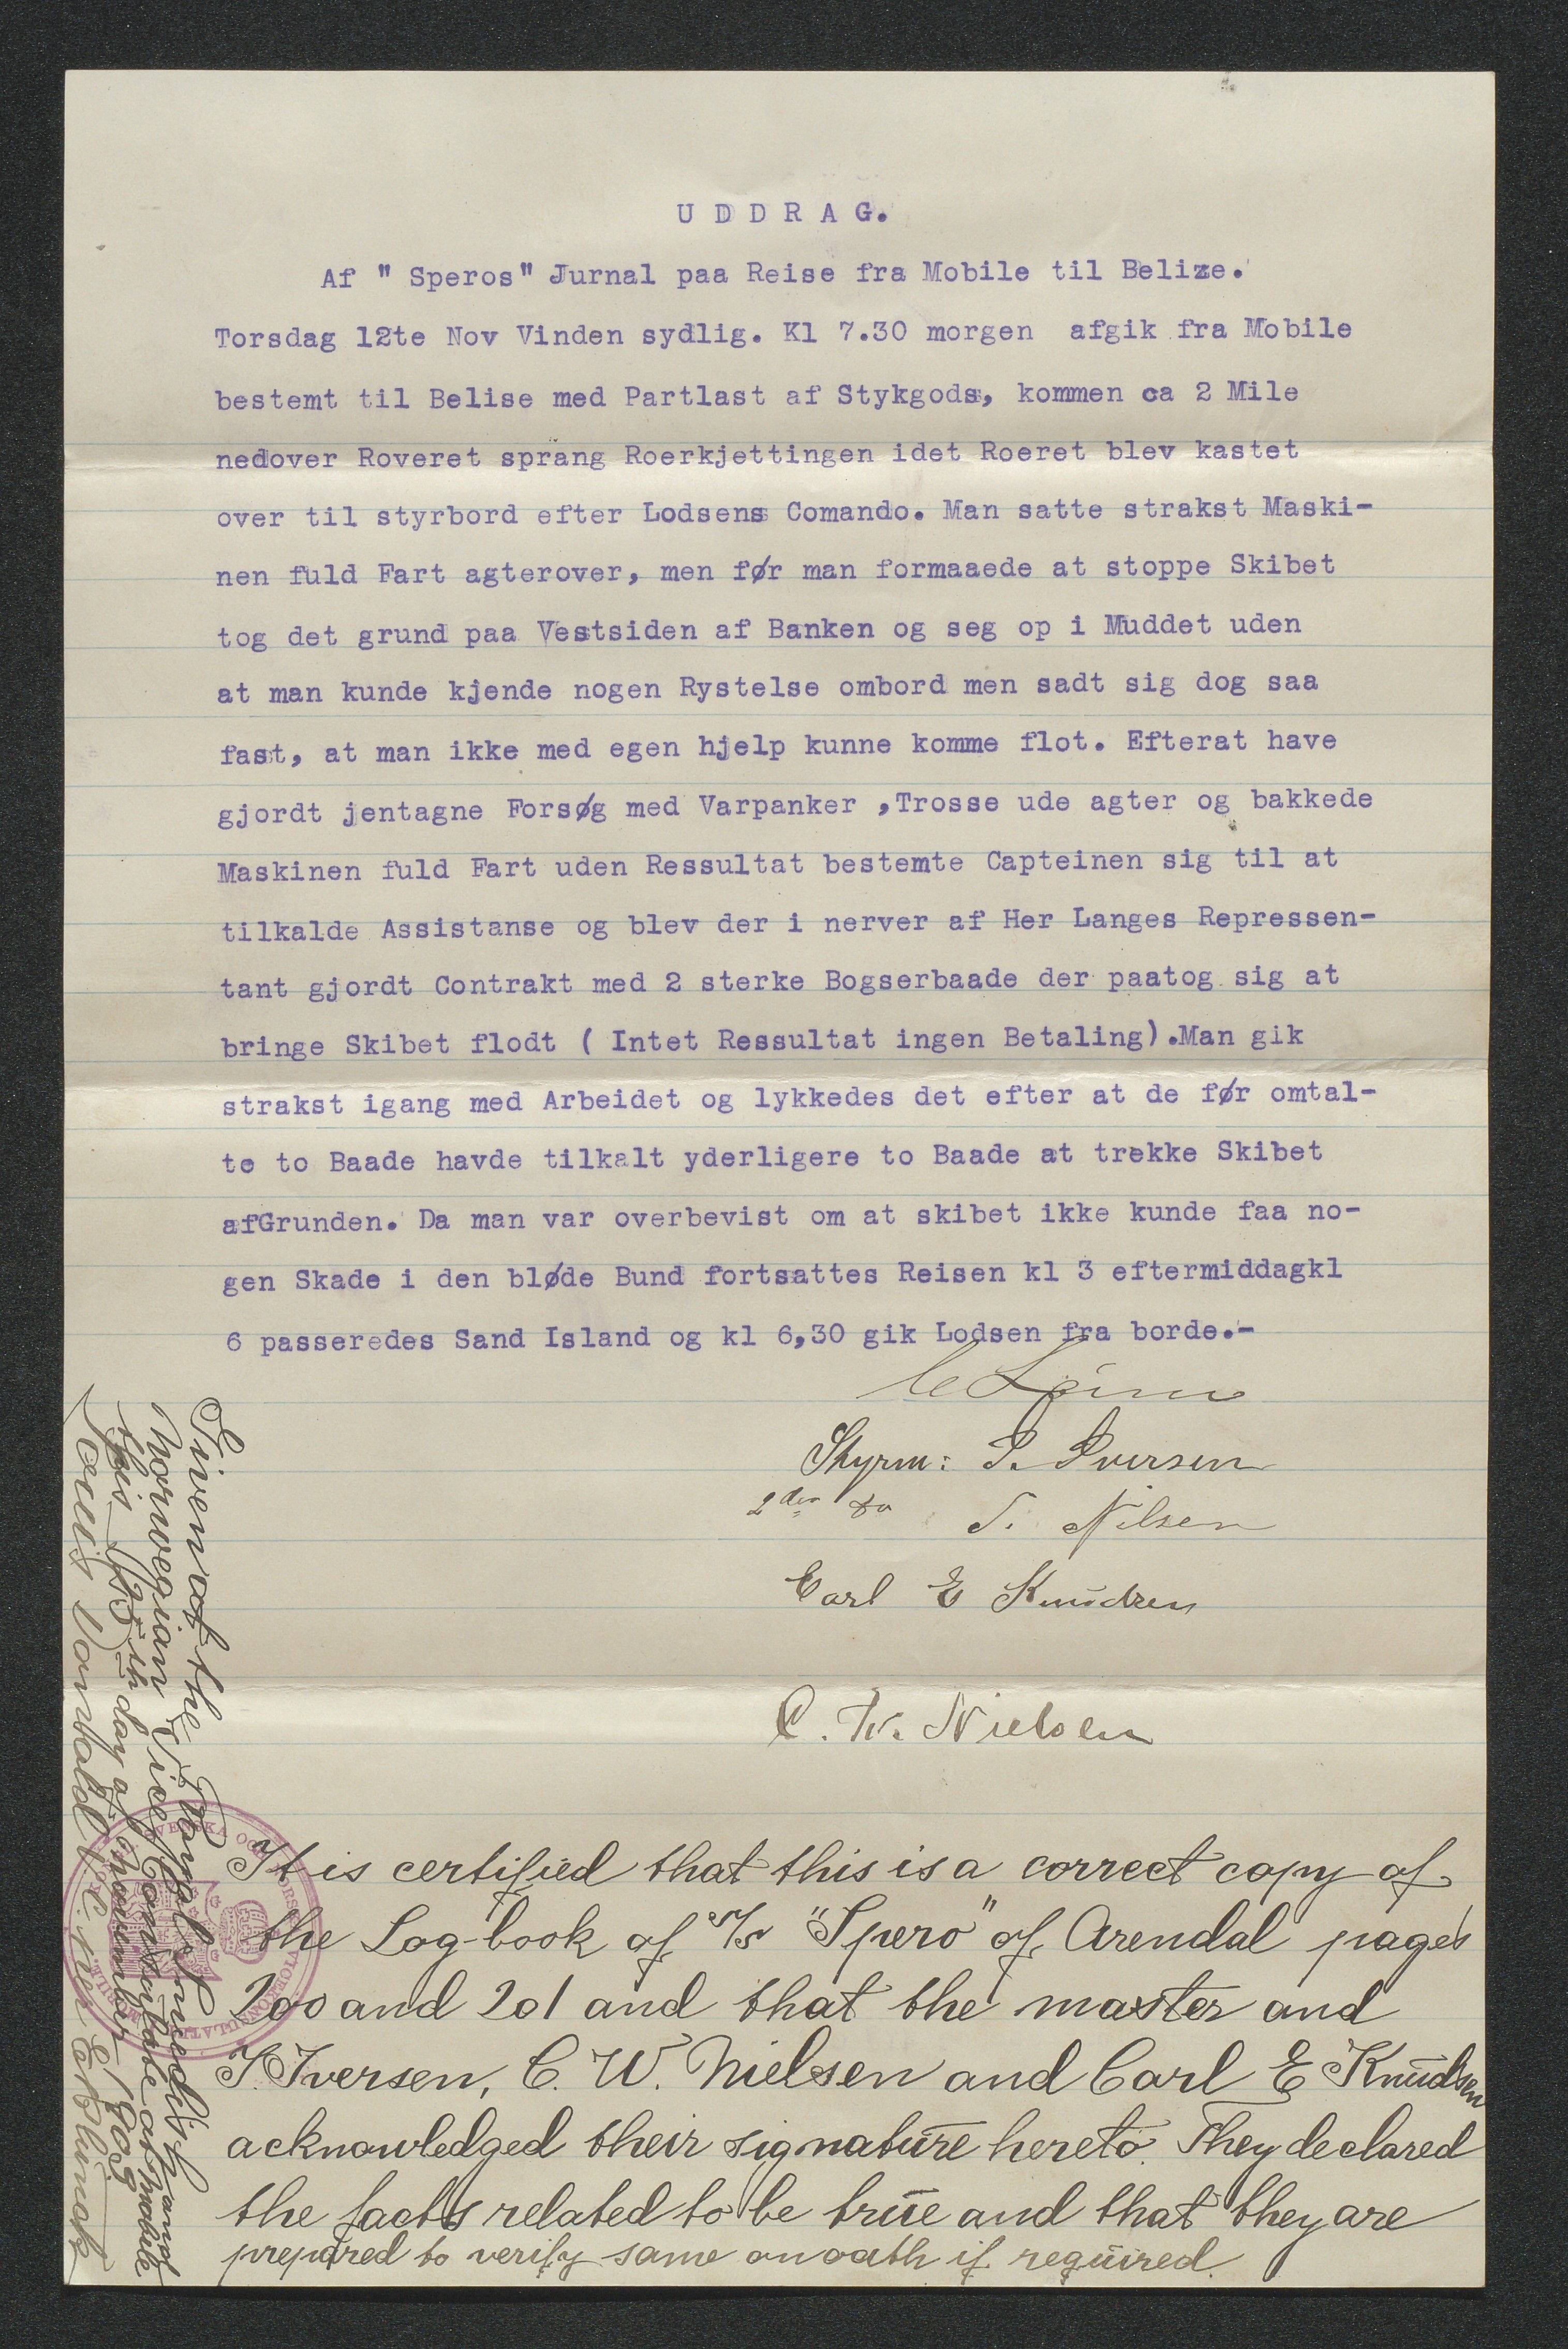 UDDRAG.
Af " Speros" Jurnal paa Reise fra Mobile til Belize.
Torsdag 12te Nov Vinden sydlig. Kl 7.30 morgen afgik fra Mobile
bestemt til Belise med Partlast af Stykgods, kommen ca 2 Mile
nedover Roveret sprang Roerkjettingen idet Roeret blev kastet
over til styrbord efter Lodsens Comando. Man satte strakst Maski-
nen fuld Fart agterover, men før man formaaede at stoppe Skibet
tog det grund paa Vestsiden af Banken og seg op i Muddet uden
at man kunde kjende nogen Rystelse ombord men sadt sig dog saa
fast, at man ikke med egen hjelp kunne komme flot. Efterat have
gjordt jentagne Forsøg med Varpanker ,Trosse ude agter og bakkede
Maskinen fuld Fart uden Ressultat bestemte Capteinen sig til at
tilkalde Assistanse og blev der i nerver af Her Langes Repressen-
tant gjordt Contrakt med 2 sterke Bogserbaade der paatog sig at
bringe Skibet flodt ( Intet Ressultat ingen Betaling).Man gik
strakst igang med Arbeidet og lykkedes det efter at de før omtal-
te to Baade havde tilkalt yderligere to Baade at trekke Skibet
afGrunden. Da man var overbevist om at skibet ikke kunde faa no-
gen Skade i den bløde Bund fortsattes Reisen kl 3 eftermiddagkl
6 passeredes Sand Island og kl 6,30 gik Lodsen fra borde.-
Styrm: I. Iversen
2den do S. Nilsen
Carl E Knudsen
C. W. Nielsen
It is certified that this is a correct copy of
the Log-book of S/S "Spero" of Arendal pages
200 and 201 and that the master and
I. Iversen, C. W. Nielsen and Carl E Knudsen
acknowledged their signature hereto. They declared
the facts related to be true and that they are
prepared to verify same on oath if required.
Given at the Royal Swedish and
Norwegian Vice Consulate at Mobile
this 13th day of November 1903
Louis Donald